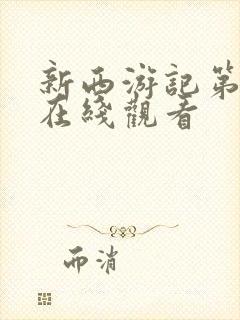 新西游記第
在綫觀看
而消